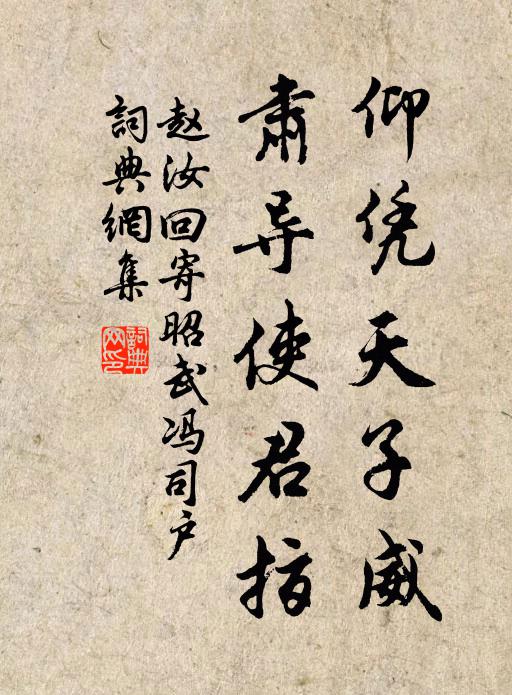 仰凭天子威
肃导使君指
赵汝回寄昭武冯司户
詞典網集
詞典
网印